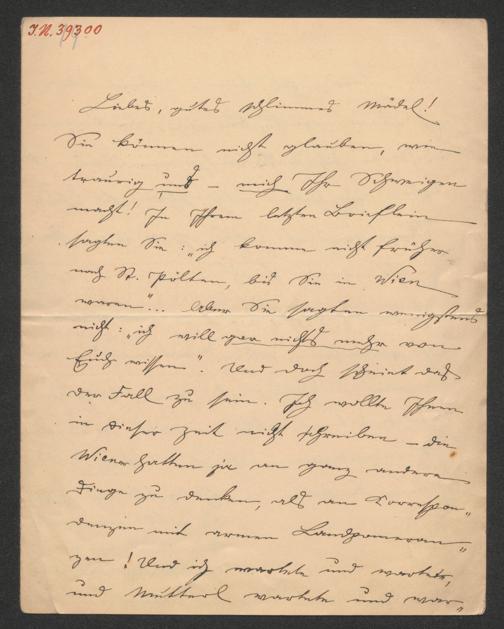 I.N. 39300
Liebes, gutes schlimmes Mädel!
Sie können nicht glauben, wie
traurig uns – mich Ihr Schweigen
macht! In Ihrem letzten Brieflein
sagten Sie: „ich komme nicht früher
nach St. Pölten, bis Sie in Wien
waren"... Aber Sie sagten wenigstens
nicht: „ich will gar nichts mehr von
Euch wissen". Und doch scheint das
der Fall zu sein. Ich wollte Ihnen
in dieser Zeit nicht schreiben – die
Wiener hatten ja an ganz andere
Dinge zu denken, als an Correspon„
denzen mit armen Landpomeran„
zen! Und ich wartete und wartete,
und Mutterl wartete und war„